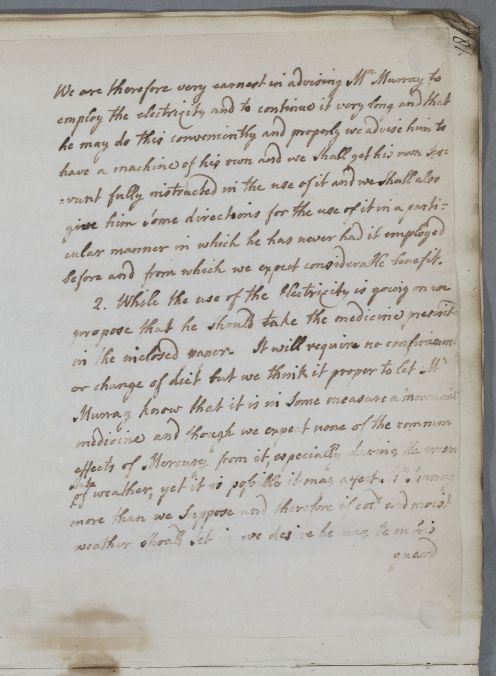 We are therefore very earnest in advising Mr Murray to
employ the electricity and to continue it very long and that
he may do this conveniently and properly we advise him to
have a machine of his own and we shall get his own Ser-
-vant fully instructed in the use of it and we shall also
give him some directions for the use of it in a parti-
cular manner in which he has never had it employed
before and from which we expect considerable benefit.
2. While the use of the Electricity is going on we
propose that he should take the medicine
in the inclosed paper. It will require no confinement
or change of diet but we think it proper to let Mr
Murray know that it is in some measure a
medicine and though we expect none of the common
effects of Mercury from it, especially during the
state
of weather, yet it is possible it may affect Mr Murray
more than we suppose and therefore if cold and moist
weather should set in we desire he may be on his
guard